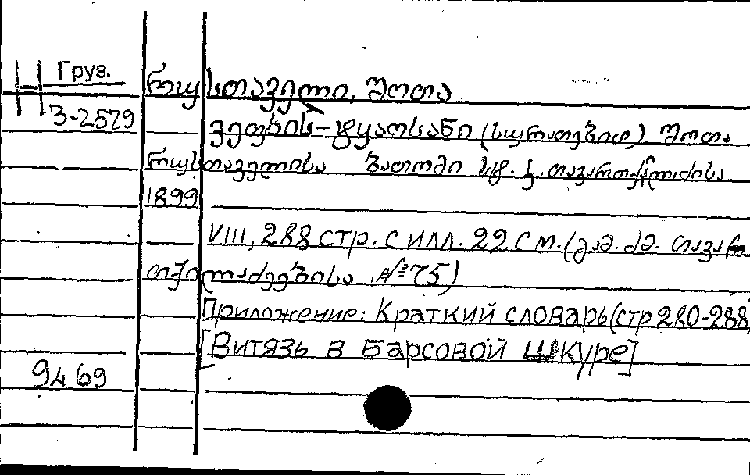 Н Груз.
რუსთაველი, შოთა
3-2579
ვეფხის-ტყაოსანი (სურათებით) შოთა
რუსთაველისა ბათომი სტ. კ. თავართქილაძისა
1899
VIII, 288 стр. с илл. 22 см. (გამ. ძმ. თავარ
თქილაძეებისა №75)
Приложение: Краткий словарь (стр 280-288)
[Витязь в барсовой шкуре]
9469